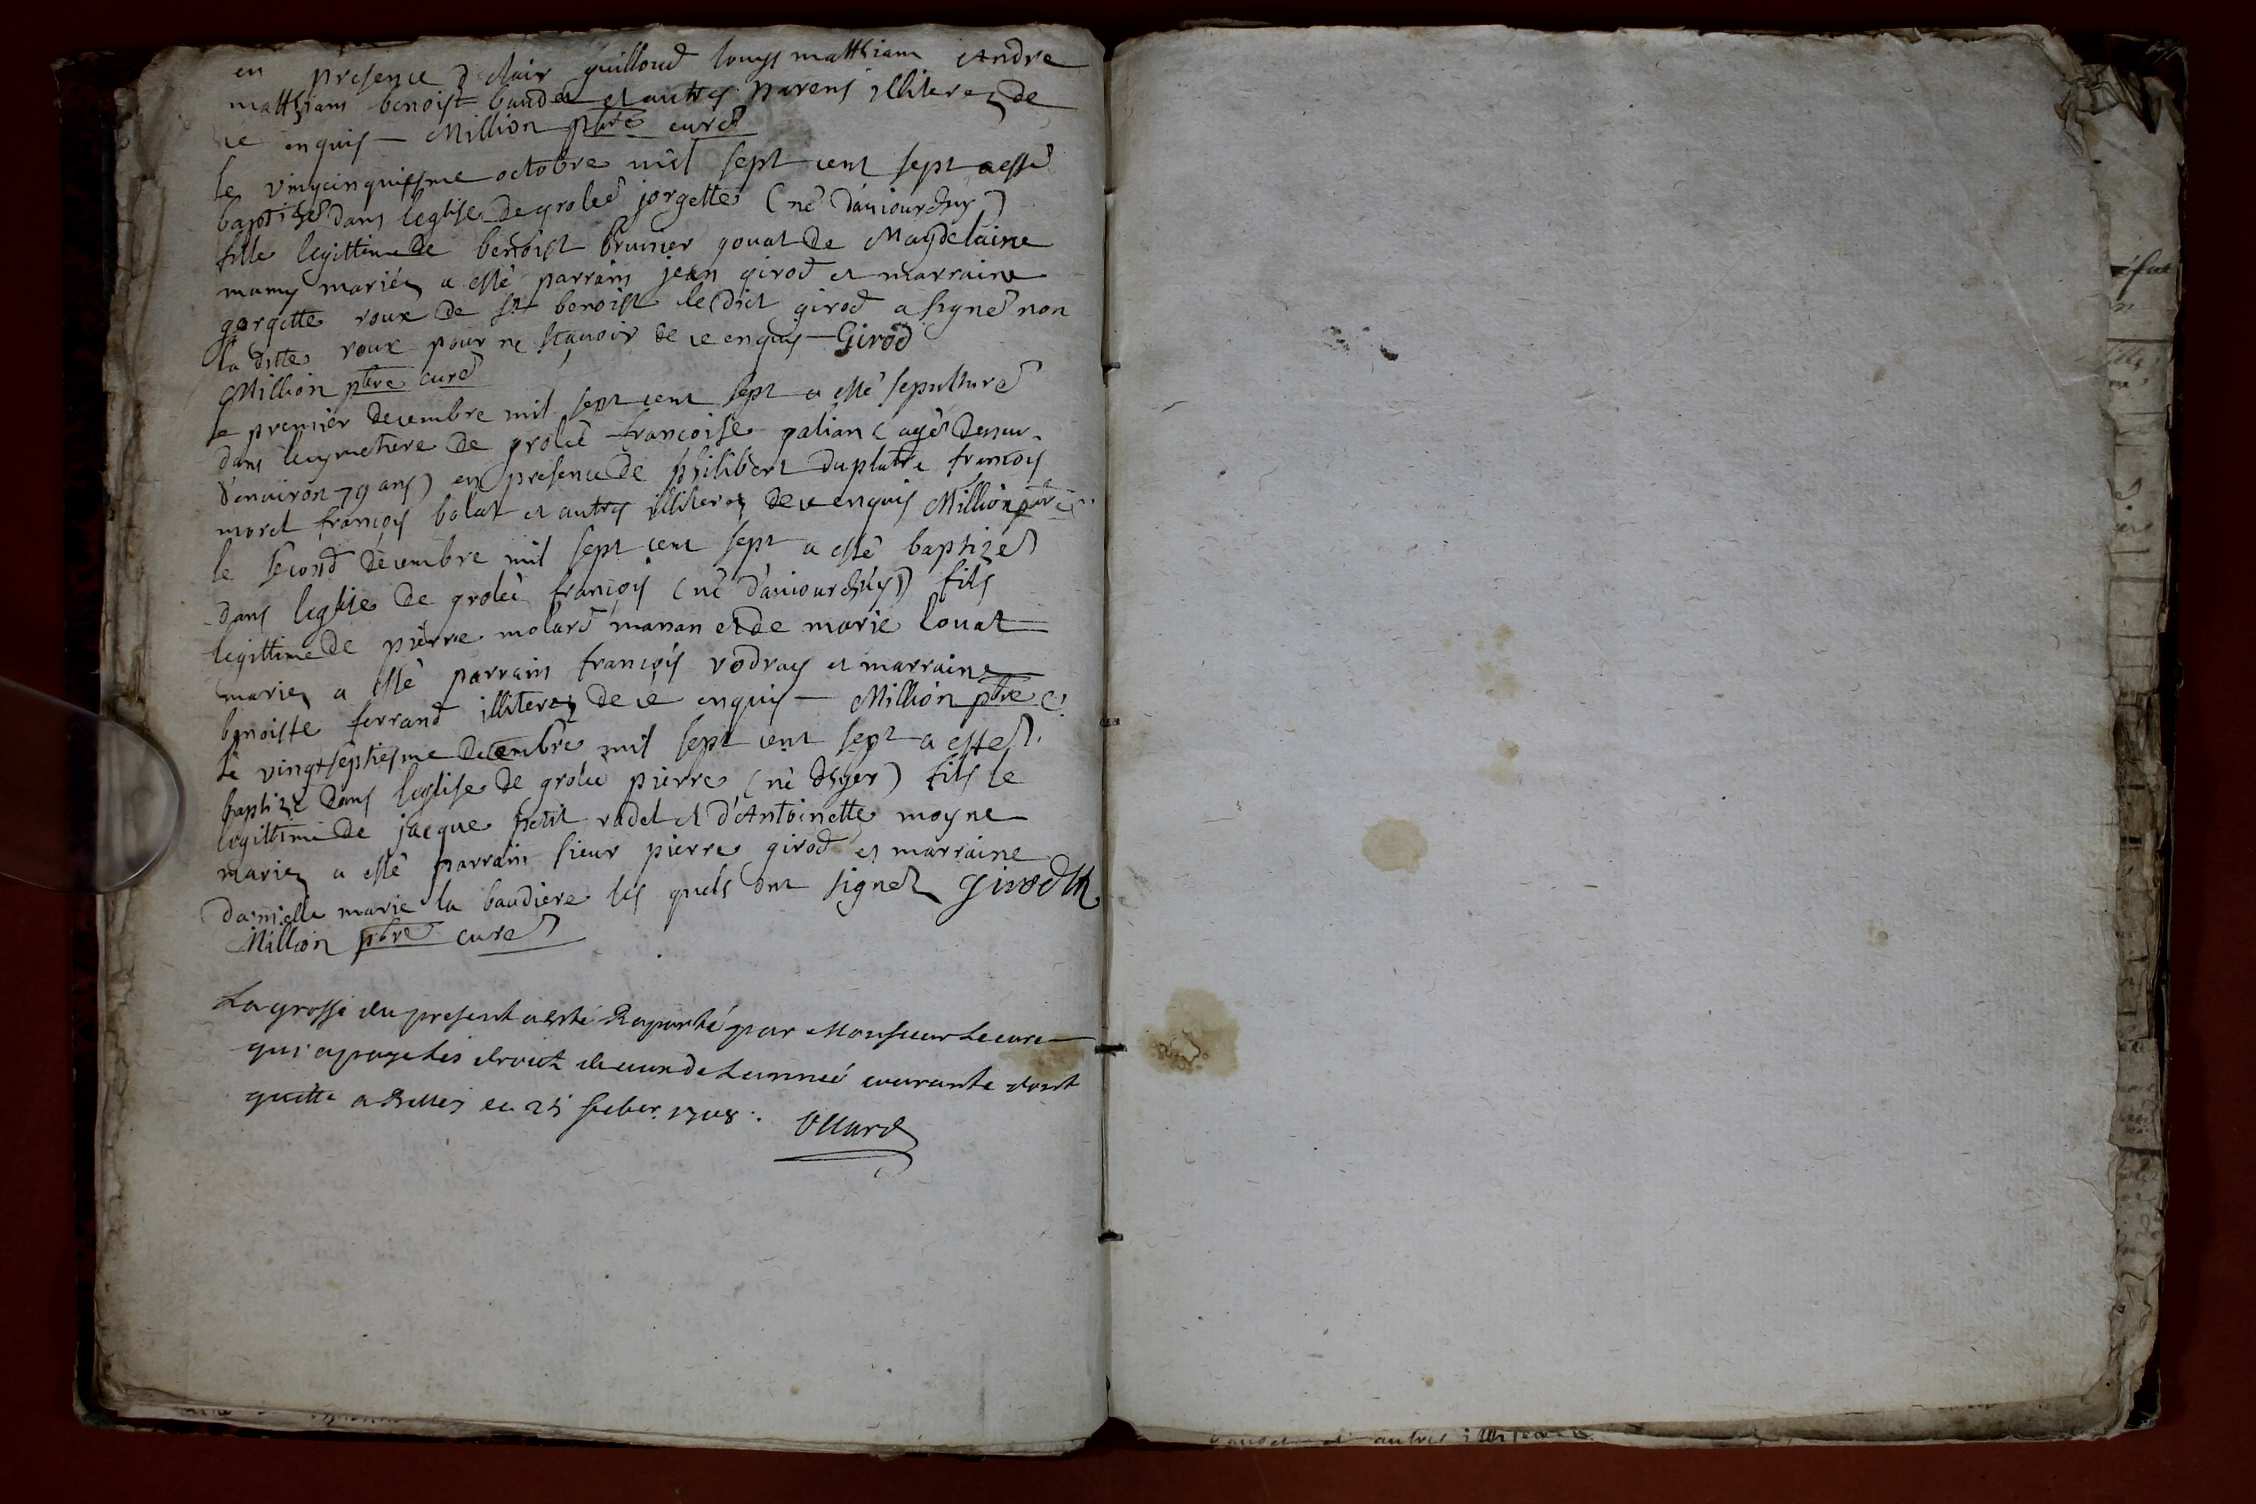 en presence d clair guilloud louys matthian Andre
matthians benoist baudet et autres parens illiterez de
ce enquis – Million pbtre curé
le vingcinquiesme octobre mil sept cent sept a esté
baptizé dans leglise de grolée jorgette (né d'auiourdhuy)
fille legittime de benoist brunier gouat de Magdelaine
mamy mariéz a esté parrain jean girod et marraine
gorgette roux de st benoist le dict girod a signé non
la ditte roux pour ne sçauoir de ce enquis – Girod
Million pbtre curé
le premier decembre mil sept cent sept a esté sepulturé
dans le cymetiere de grolée francoise galian (agée
d'enuiron 79 ans) en presence de philibert duplatre françois
morel françois bolat et autres illiterez de ce enquis Million pbtre
le second decembre mil sept cent sept a esté baptizé
dans leglise de grolée françois (né d'auiourdhuy) fils
legittime de pierre molard manan et de marie louat
mariez a esté parrain françois vodray et marraine
benoiste ferrand illiterez de ce enquis – Million pbtre c.
le vingtseptiesme decembre mil sept cent sept a esté
baptizé dans leglise de grolée pierre (né dhyer) fils le
legittime de jacque petit radet et d'Antoinette moyne
mariez a esté parrain sieur pierre girod et marraine
damlle marie la baudiere les quels ont signez Girod
Million pbtre curé
La grosse du present a esté Raporté par Monsieur Le curé
qui a paye les droict de lannée courante dont
quitte a Belley ce 25 feber. 1708.